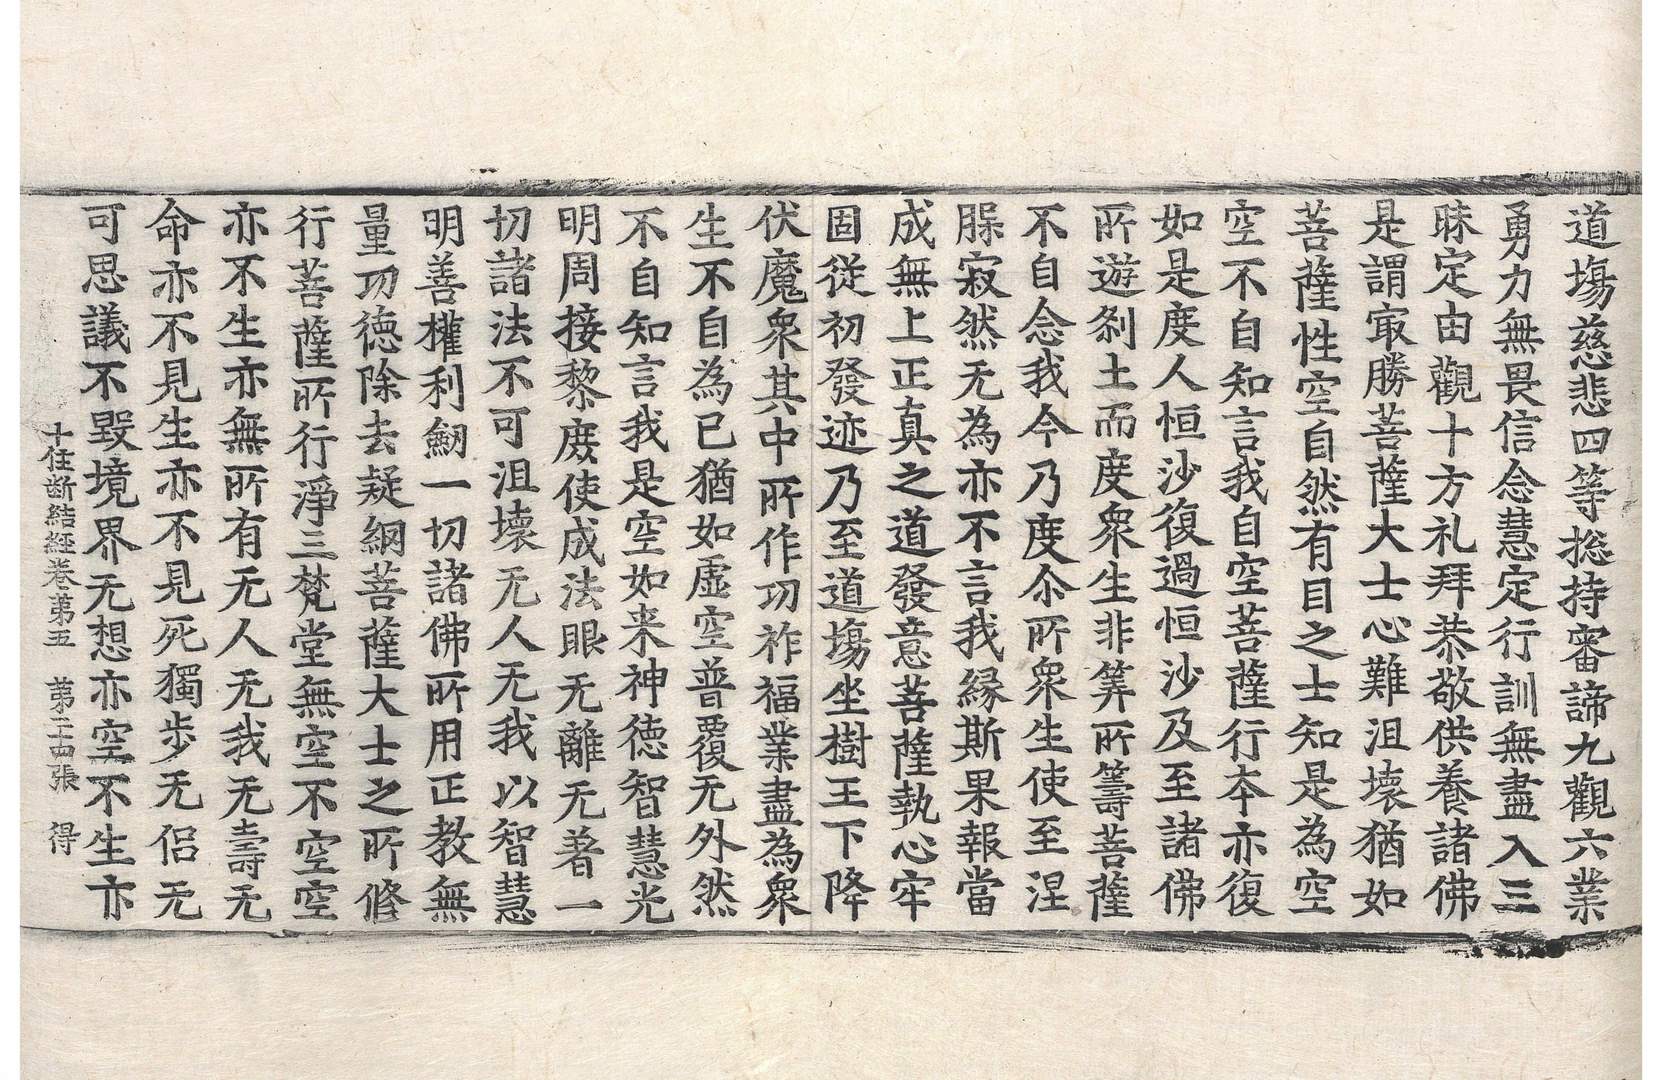 道場慈悲四等捴持審諦九觀六業
勇力無畏信念慧定行訓無盡入三
昧定由觀十方礼拜恭敬供養諸佛
是謂㝡勝菩薩大士心難沮壞猶如
菩薩性空自然有目之士知是為空
空不自知言我自空菩薩行夲亦復
如是度人恒沙復過恒沙及至諸佛
所遊刹土而度衆生非筭所籌菩薩
不自念我今乃度尒所衆生使至涅
䏶寂然无為亦不言我緣斯果報當
成無上正真之道發意菩薩執心牢
固從初發迹乃至道場坐樹王下降
伏魔衆其中所作功祚福業盡為衆
生不自為已猶如虛空普覆无外然
不自知言我是空如来神德智慧光
明周接黎庶使成法眼无離无著一
切諸法不可沮壞无人无我以智慧
明善權利劒一切諸佛所用正教無
量功德除去疑網菩薩大士之所修
行菩薩所行淨三梵堂無空不空空
亦不生亦無所有无人无我无壽无
命亦不見生亦不見死獨步无侣无
可思議不毀境界无想亦空不生亦
十住断結經卷第五　第二十四張　得